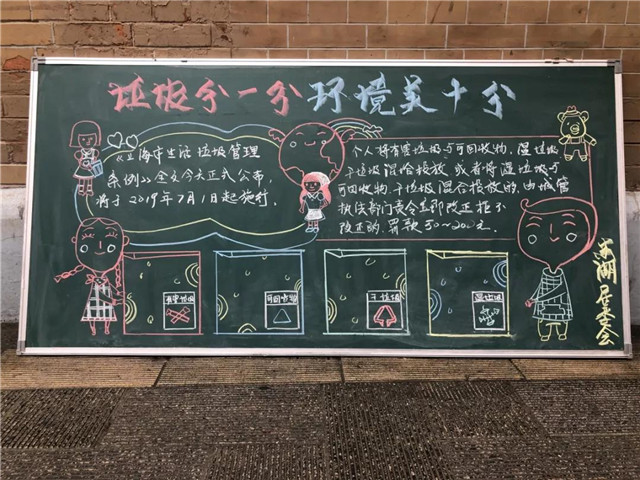 垃圾分一分 环境美十分
《上海市生活垃圾管理
条例》全文今天正式公布
将于2019年7月1日起施行.
个人将有害垃圾与可回收物、湿垃圾
干垃圾混合投放,或者将湿垃圾与
可回收物、干垃圾混合投放的,由城管
执法部门责令立即改正拒不
改正的,罚款50~200元.
有害垃圾
可回收物
干垃圾
湿垃圾
湖居委会